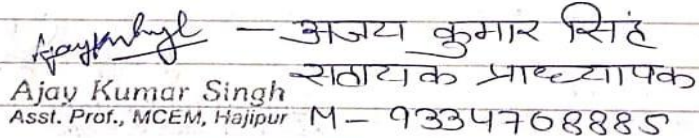 — अजय कुमार सिंह
Ajay Kumar Singh
सहायक प्राध्यापक
Asst. Prof., MCEM, Hajipur
M – 9334708885